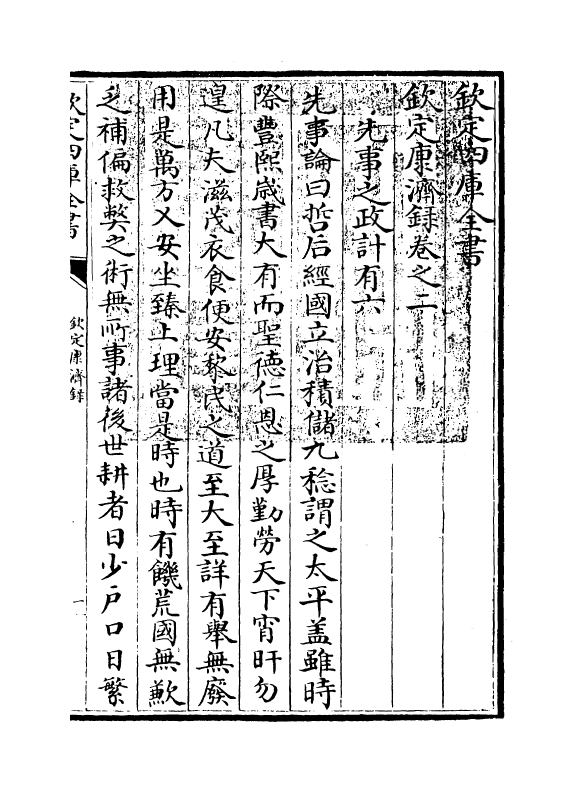 欽定四庫全書
欽定康濟録卷之二
先事之政計有六
先事論曰哲后經國立治積儲九稔謂之太平盖雖時
際豐熙歳書大有而聖德仁恩之厚勤勞天下宵旰勿
遑凡夫滋茂衣食便安黎民之道至大至詳有舉無廢
用是萬方乂安坐臻上理當是時也時有饑荒國無歉
乏補偏救弊之術無所事諸後世耕者日少戶口日繁
欽定四庫全書
欽定康濟録
一